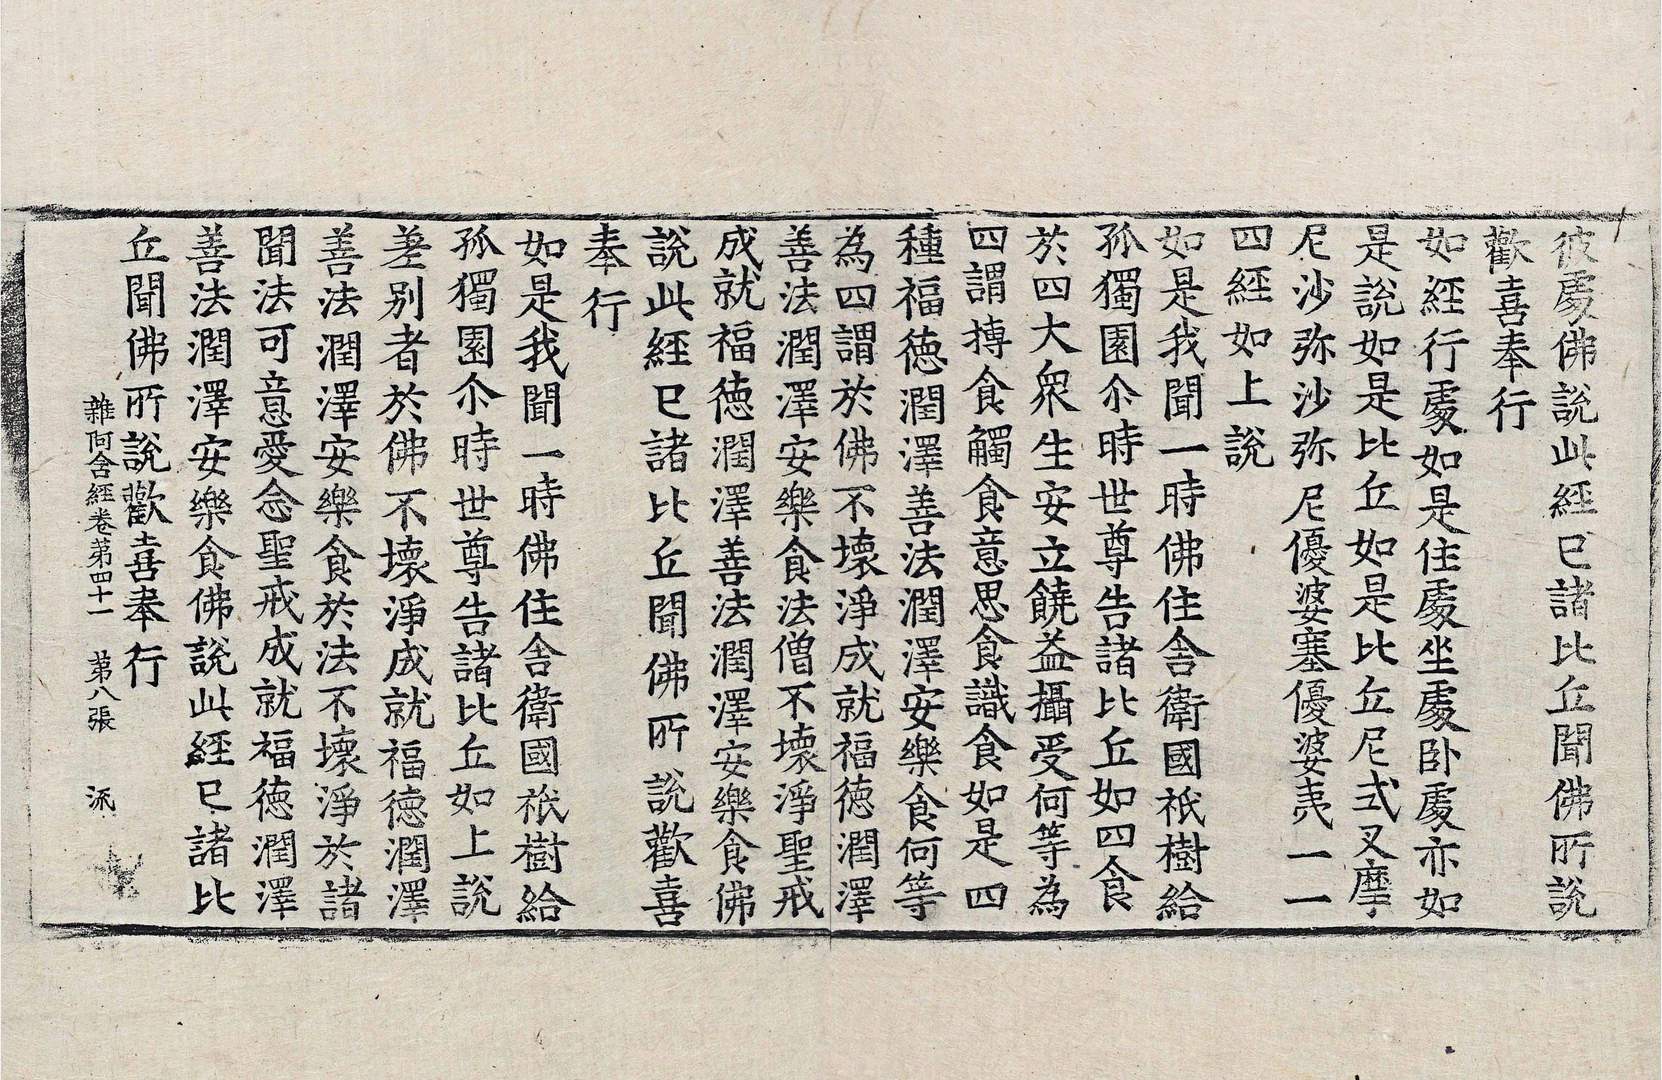 彼處佛說此經已諸比丘聞佛所說
歡喜奉行
如經行處如是住處坐處卧處亦如
是說如是比丘如是比丘尼式叉摩
尼沙弥沙弥尼優婆塞優婆夷一一
四經如上說
如是我聞一時佛住舍衛國祇樹給
孤獨園尒時世尊告諸比丘如四食
於四大衆生安立饒益攝受何等為
四謂摶食觸食意思食識食如是四
種福德潤澤善法潤澤安樂食何等
為四謂於佛不壞淨成就福德潤澤
善法潤澤安樂食法僧不壞淨聖戒
成就福德潤澤善法潤澤安樂食佛
說此經已諸比丘聞佛所說歡喜
奉行
如是我聞一時佛住舍衛國祇樹給
孤獨園尒時世尊告諸比丘如上說
差別者於佛不壞淨成就福德潤澤
善法潤澤安樂食於法不壞淨於諸
聞法可意愛念聖戒成就福德潤澤
善法潤澤安樂食佛說此經已諸比
丘聞佛所說歡喜奉行
雜阿含經卷第四十一 第八張 流